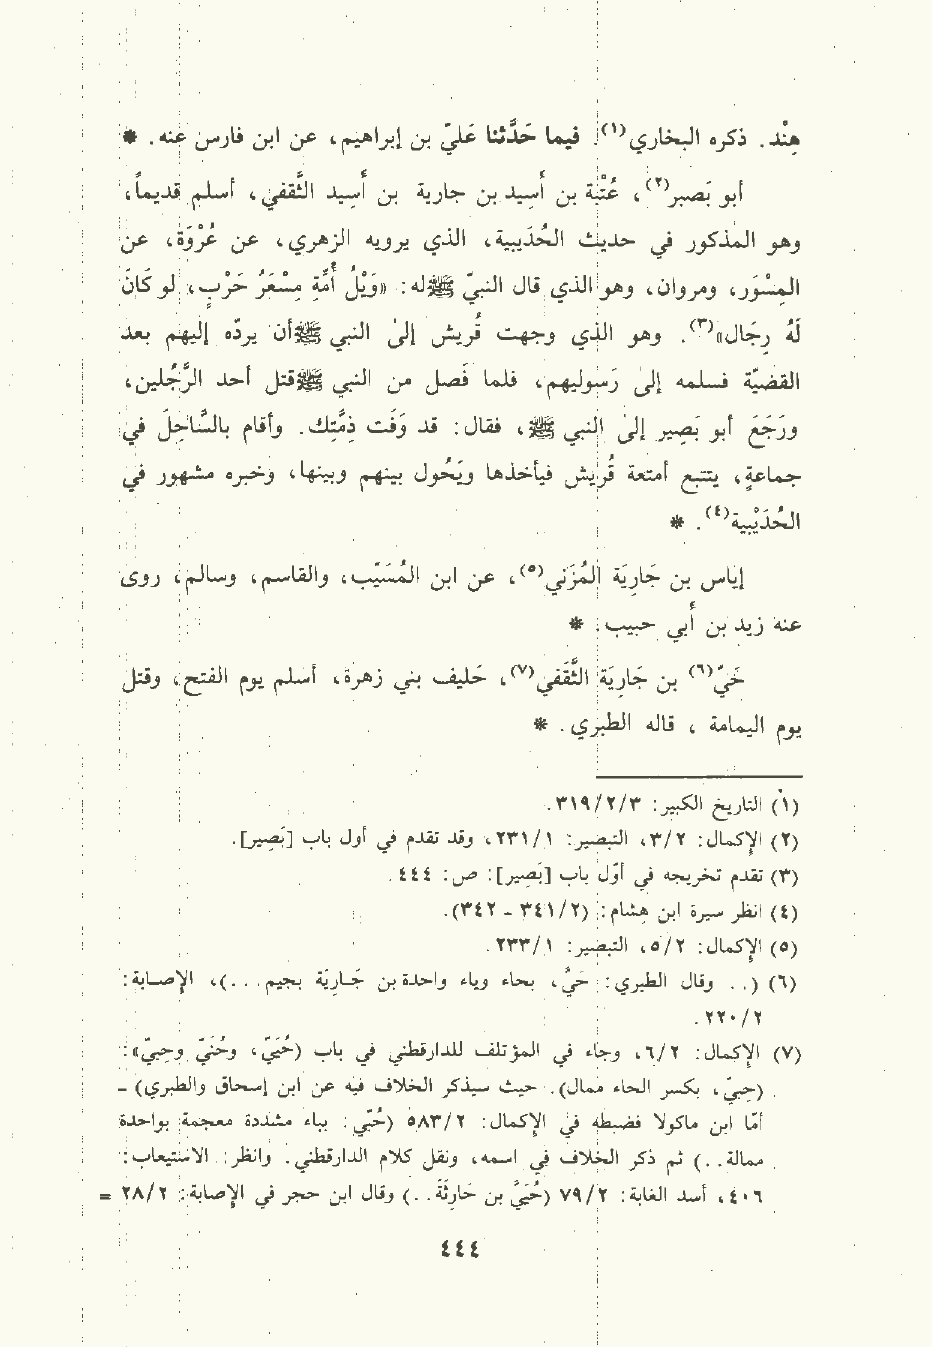 هِنْد. ذكره البخاري(١). فيما حَدَّثنا عَليّ بن إبراهيم، عن ابن فارس عنه. *
أبو بَصير(٢)، عُتْبَة بن أَسِيد بن جارية بن أَسِيد الثَّقفي، أسلم قديماً،
وهو المذكور في حديث الحُدَيبية، الذي يرويه الزهري، عن عُرْوَة، عن
المِسْوَر، ومروان، وهو الذي قال النبيّ ﷺ له: «وَيْلُ أُمِّهِ مِسْعَرُ حَرْبٍ، لو كَانَ
لَهُ رِجَال»(٣). وهو الذي وجهت قُريش إلىٰ النبي ﷺ أن يردّه إليهم بعد
القضيّة فسلمه إلىٰ رَسوليهم، فلما فَصل من النبي ﷺ قتل أحد الرَّجُلين،
ورَجَعَ أبو بَصِير إلىٰ النبي ﷺ، فقال: قد وَفَت ذِمَّتِك. وأقام بالسَّاحِلَ في
جماعةٍ، يتتبع أمتعة قُريش فيأخذها ويَحُول بينهم وبينها، وخبره مشهور في
الحُدَيْبِية(٤). *
إياس بن جَارِيَة المُزَني(٥)، عن ابن المُسَيّب، والقاسم، وسالم، روى
عنه زيد بن أَبي حبيب. *
حَيّ(٦) بن جَارِيَة الثَّقَفي(٧)، حَليف بني زهرة، أسلم يوم الفتح، وقتل
يوم اليمامة، قاله الطبري. *
(١) التاريخ الكبير: ٣١٩/٢/٣.
(٢) الإكمال: ٣/٢، التبصير: ٢٣١/١، وقد تقدم في أول باب [بَصِير].
(٣) تقدم تخريجه في أوّل باب [بَصِير]: ص: ٤٤٤.
(٤) انظر سيرة ابن هشام: (٣٤١/٢ - ٣٤٢).
(٥) الإكمال: ٥/٢، التبصير: ٢٣٣/١.
(٦) (.. وقال الطبري: حَيُّ، بحاء وياء واحدة بن جَـارِيَة بجيم...)، الإصـابة:
٢٢٠/٢.
(٧) الإكمال: ٦/٢، وجاء في المؤتلف للدارقطني في باب (حُيَيّ، وحُنَيّ وحِبيّ»:
(حِبيّ، بكسر الحاء ممال). حيث سيذكر الخلاف فيه عن ابن إسحاق والطبري) -
أمّا ابن ماكولا فضبطه في الإكمال: ٥٨٣/٢ (حُبّي: بباء مشددة معجمة بواحدة
ممالة..) ثم ذكر الخلاف في اسمه، ونقل كلام الدارقطني. وانظر: الاستيعاب:
٤٠٦، أسد الغابة: ٧٩/٢ (حُيَيُّ بن حَارِثَةَ..) وقال ابن حجر في الإصابة: ٢٨/٢ =
٤٤٤